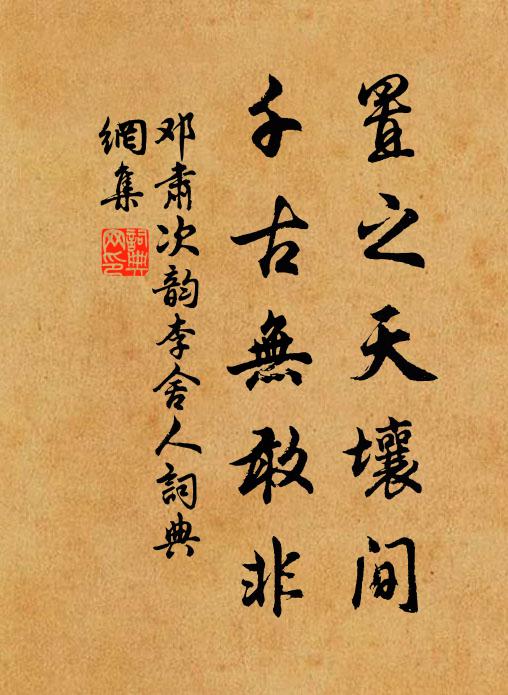 置之天壤间
千古無敢非
邓肃次韵李舍人詞典
網集
詞典網印